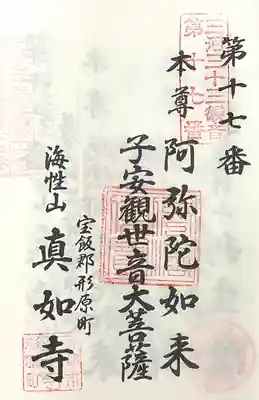 第十七番
三河三十三観音
第十七番
本尊 阿弥陀如来
子安觀世音大菩薩
宝飯郡形原町
海性山 真如寺